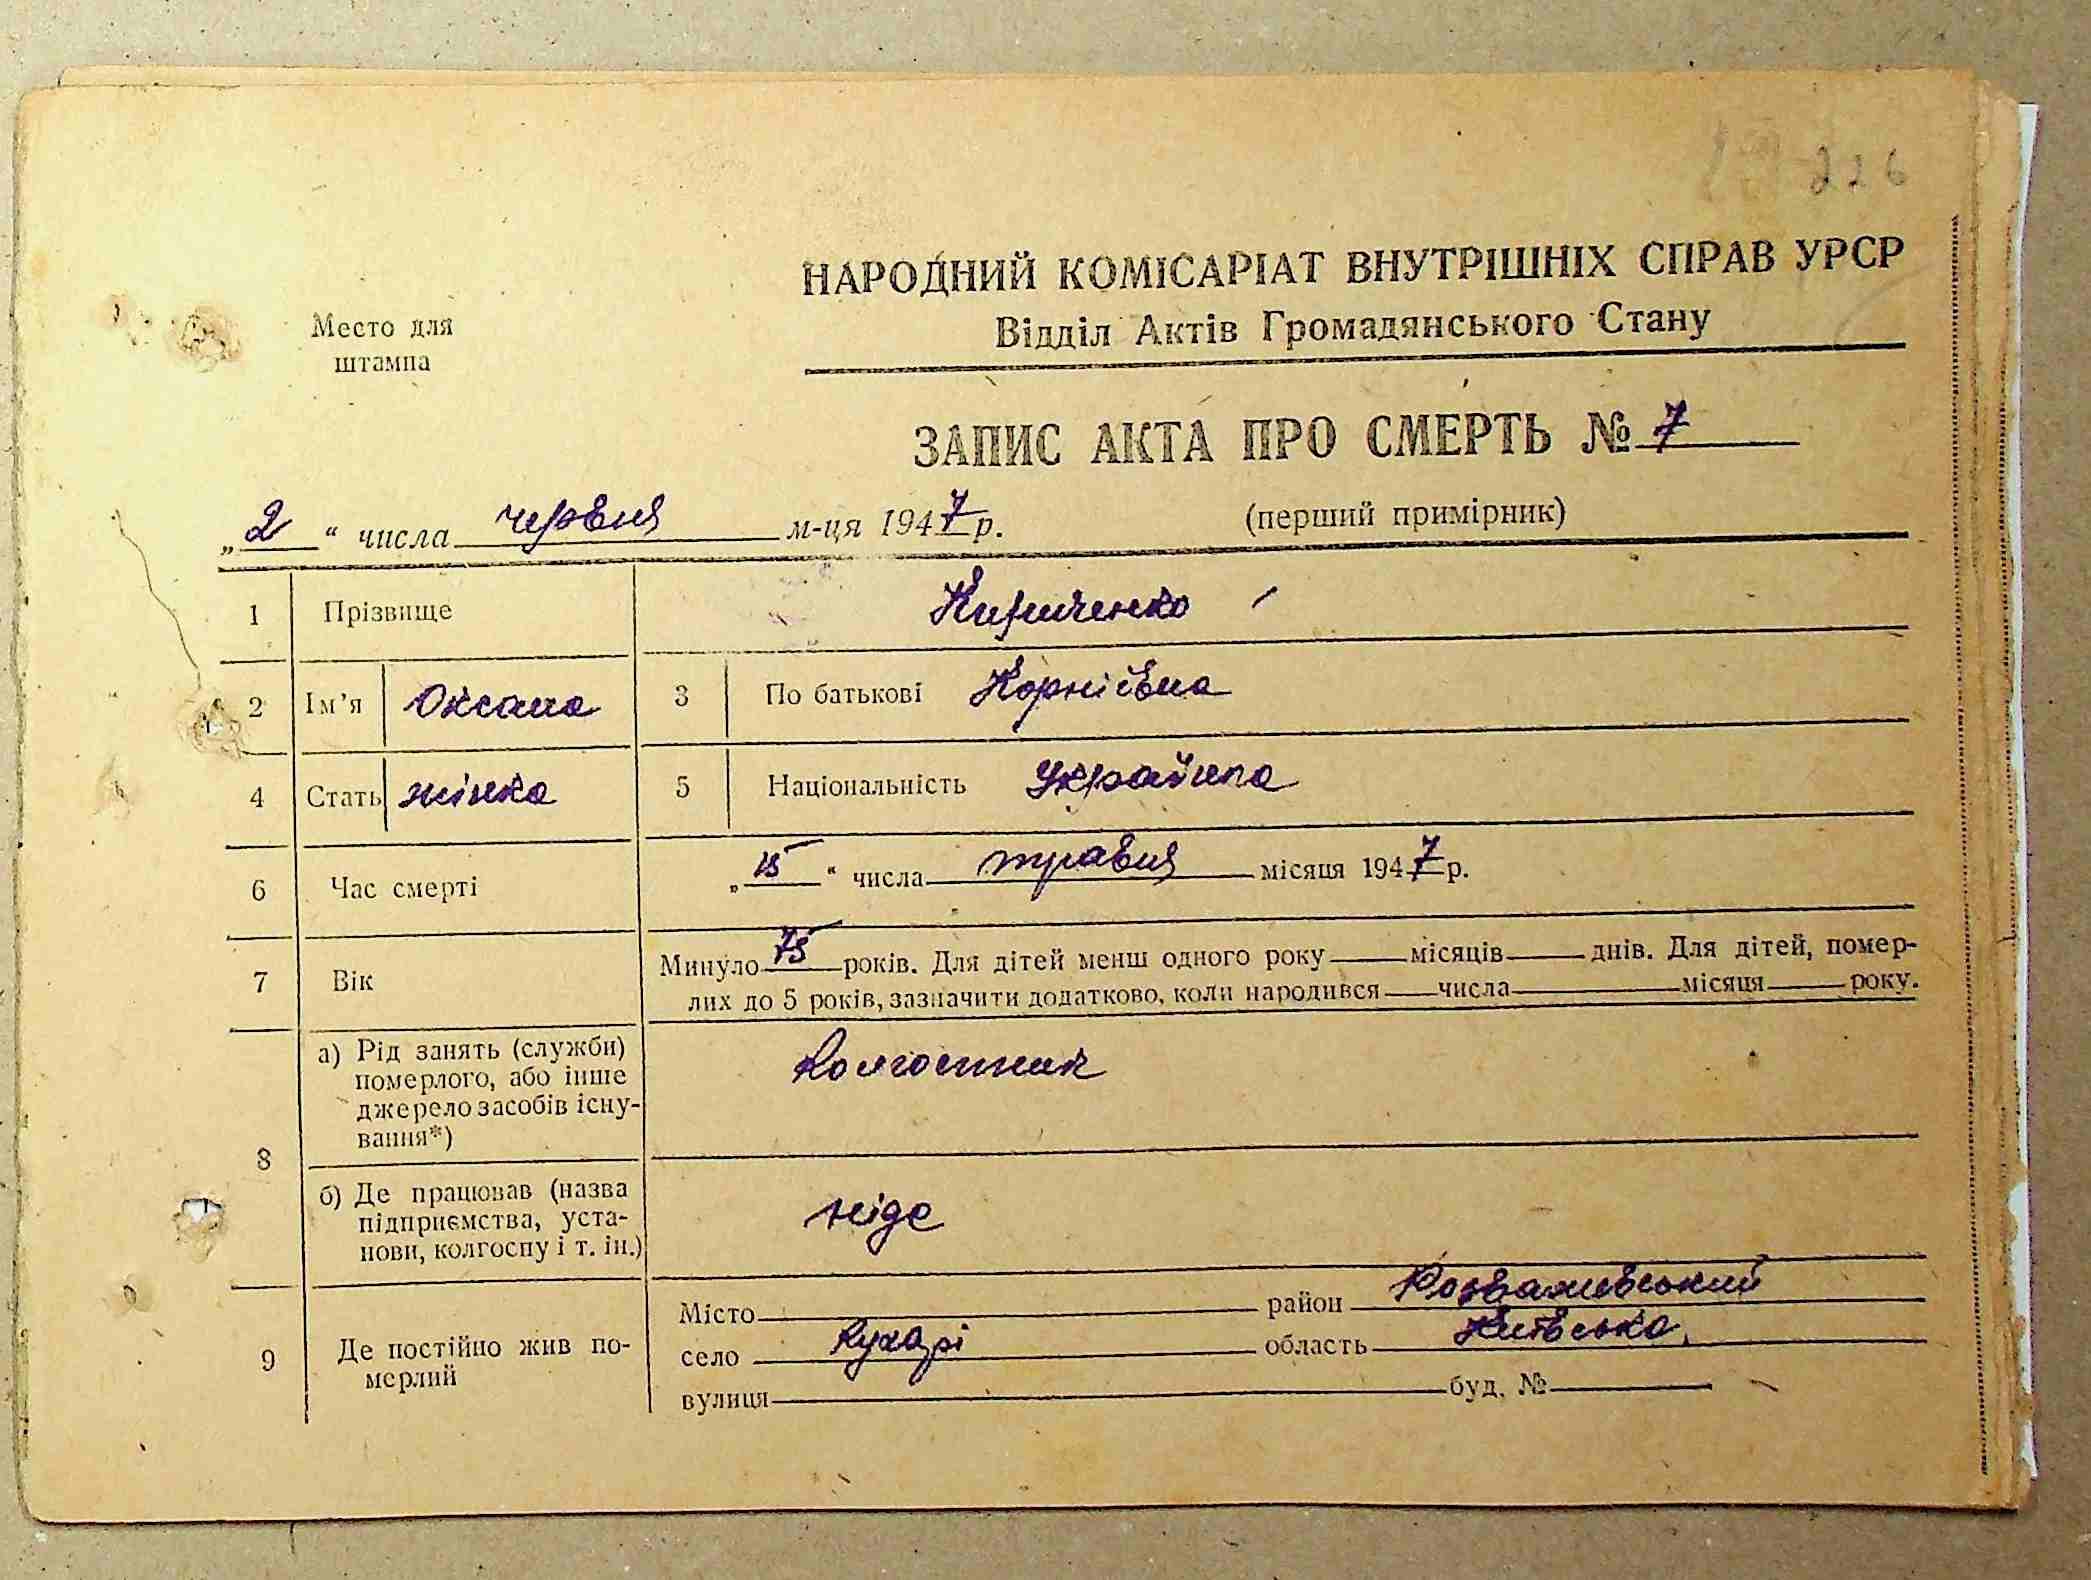 226
НАРОДНИЙ КОМІСАРІАТ ВНУТРІШНІХ СПРАВ УРСР
Відділ Актів Громадянського Стану
Место для
штампа
ЗАПИС АКТА ПРО СМЕРТЬ № 7
„2“ числа червня м-ця 1947 р.
(перший примірник)
1 Прізвище Кириченко
2 Ім'я Оксана 3 По батькові Корніївна
4 Стать жінка 5 Національність Українка
6 Час смерті „15“ числа травня місяця 1947 р.
7 Вік Минуло 75 років. Для дітей менш одного року місяців днів. Для дітей, помер-
лих до 5 років, зазначити додатково, коли народився числа місяця року.
8 а) Рід занять (служби)
померлого, або інше
джерело засобів існу-
вання*)
Колгоспник
б) Де працював (назва
підприємства, уста-
нови, колгоспу і т. ін.)
ніде
9 Де постійно жив по-
мерлий
Місто район Розважівський
село Кухарі область Київська
вулиця буд. №